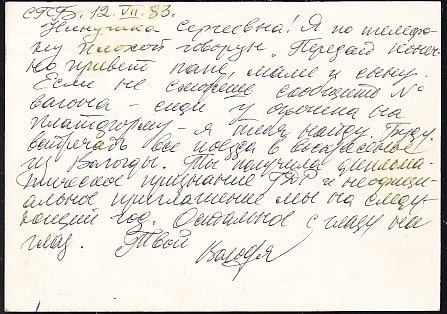 СПБ. 12.VII.83.
Нинушка Сергеевна! Я по телефо-
ну плохой говорун. Передай конеч-
но привет папе, маме и сыну.
Если не сможешь сообщить №
вагона - сиди у окна на
платформу - я тебя найду. Буду
встречать все поезда в воскресенье
из Вологды. Ты получила диплома-
тическое признание ГДР и неофици-
альное приглашение мы на следу-
ющий год. Остальное с глазу на
глаз. Твой
Володя